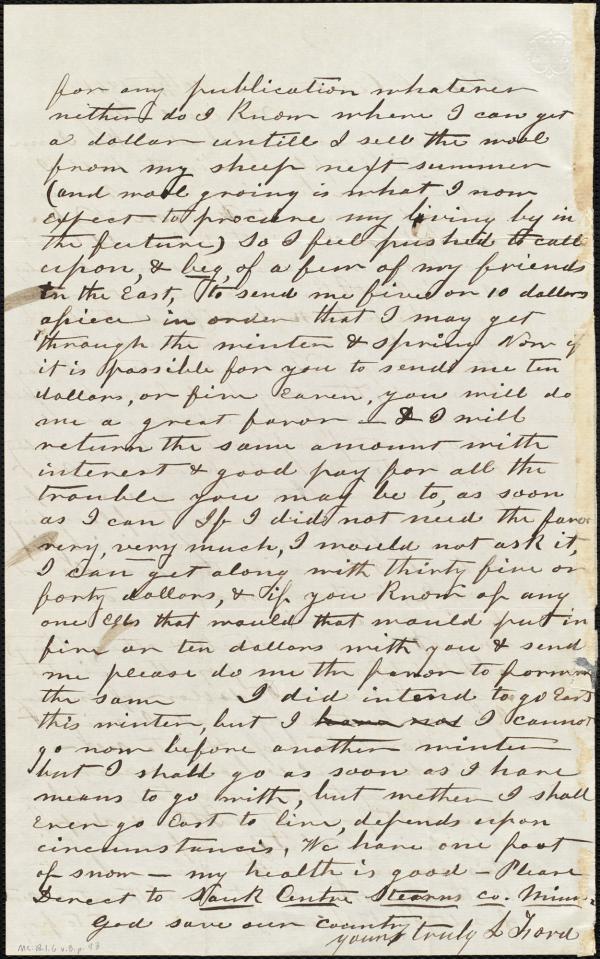 for any publication whatever
neither do I Know where I can get
a dollar untill I sell the wool
from my sheep next summer
(and wool groing is what I now
expect to procure my living by in
the future) So I feel pushed to call
upon, & beg, of a few of my friends
in the East, to send me five or 10 dollars
apiece in order that I may get
through the winter & spring Now if
it is possible for you to send me ten
dollars, or five even, you will do
me a great favor — & I will
return the same amount with
interest & good pay for all the
trouble you may be to, as soon
as I can If I did not need the favor
very, very much, I would not ask it,
I can get along with thirty five or
forty dollars, & if you Know of any
one Els that would that would put in
five or ten dollars with you & send
me please do me the favor to
the same I did intend to go East
this winter, but I have not I cannot
go now before another winter
but I shall go as soon as I have
means to go with, but wether I shall
Ever go East to live, depends upon
circumstancis, We have one foot
of snow — my health is good — Please
Derect to Sauk Centre Stearns co. Minn
God save our country
yours truly L Ford
Ms. B.1.6 v.8, p. 98